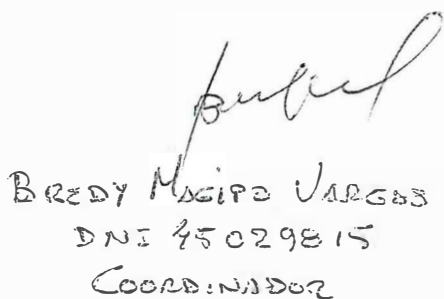 BREDY MACIPO VARGAS
DNI 45029815
COORDINADOR